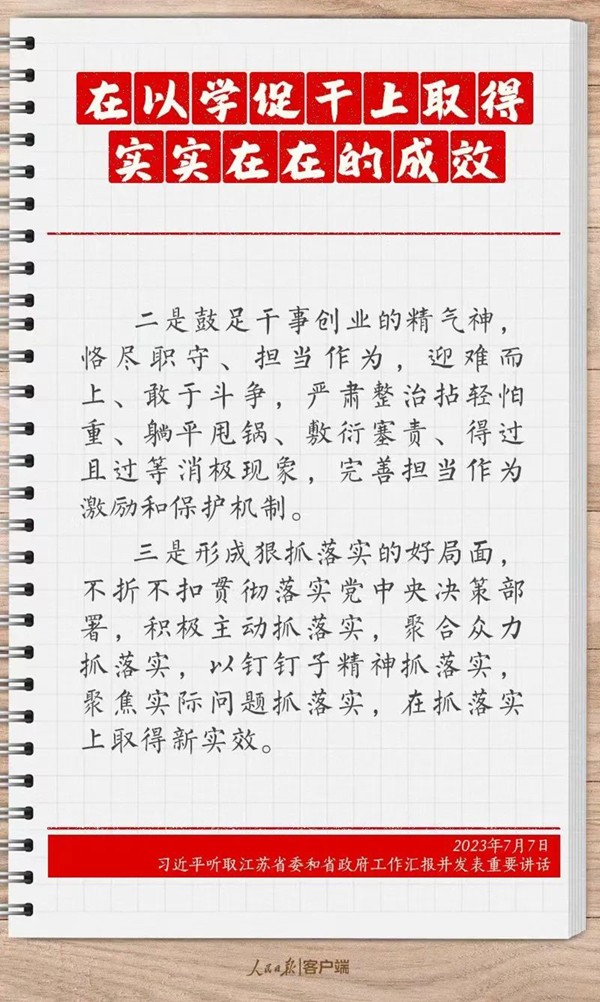 在以学促干上取得
实实在在的成效
二是鼓足干事创业的精气神，
恪尽职守、担当作为，迎难而
上、敢于斗争，严肃整治拈轻怕
重、躺平甩锅、敷衍塞责、得过
且过等消极现象，完善担当作为
激励和保护机制。
三是形成狠抓落实的好局面，
不折不扣贯彻落实党中央决策部
署，积极主动抓落实，聚合众力
抓落实，以钉钉子精神抓落实，
聚焦实际问题抓落实，在抓落实
上取得新实效。
2023年7月7日
习近平听取江苏省委和省政府工作汇报并发表重要讲话
人民日报|客户端